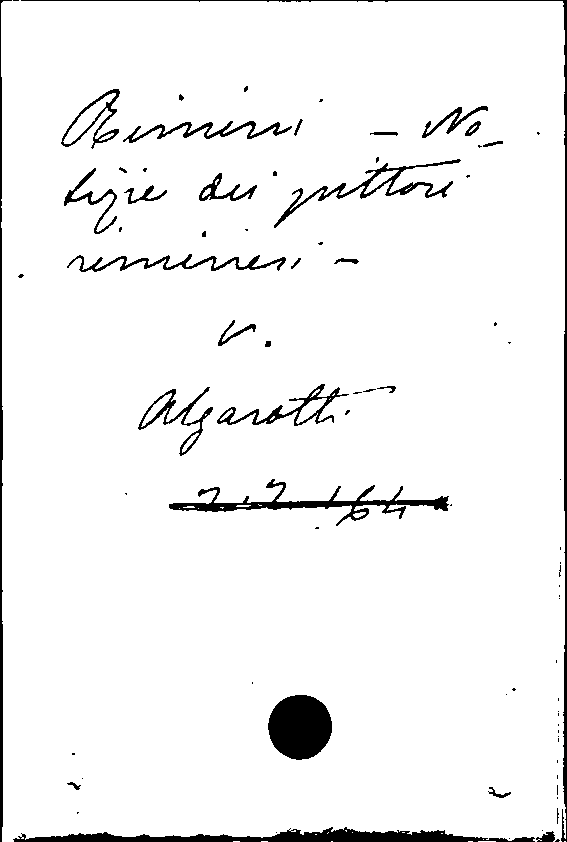 Rimini - No_
tizie dei pittori
riminesi -
v.
Algarotti